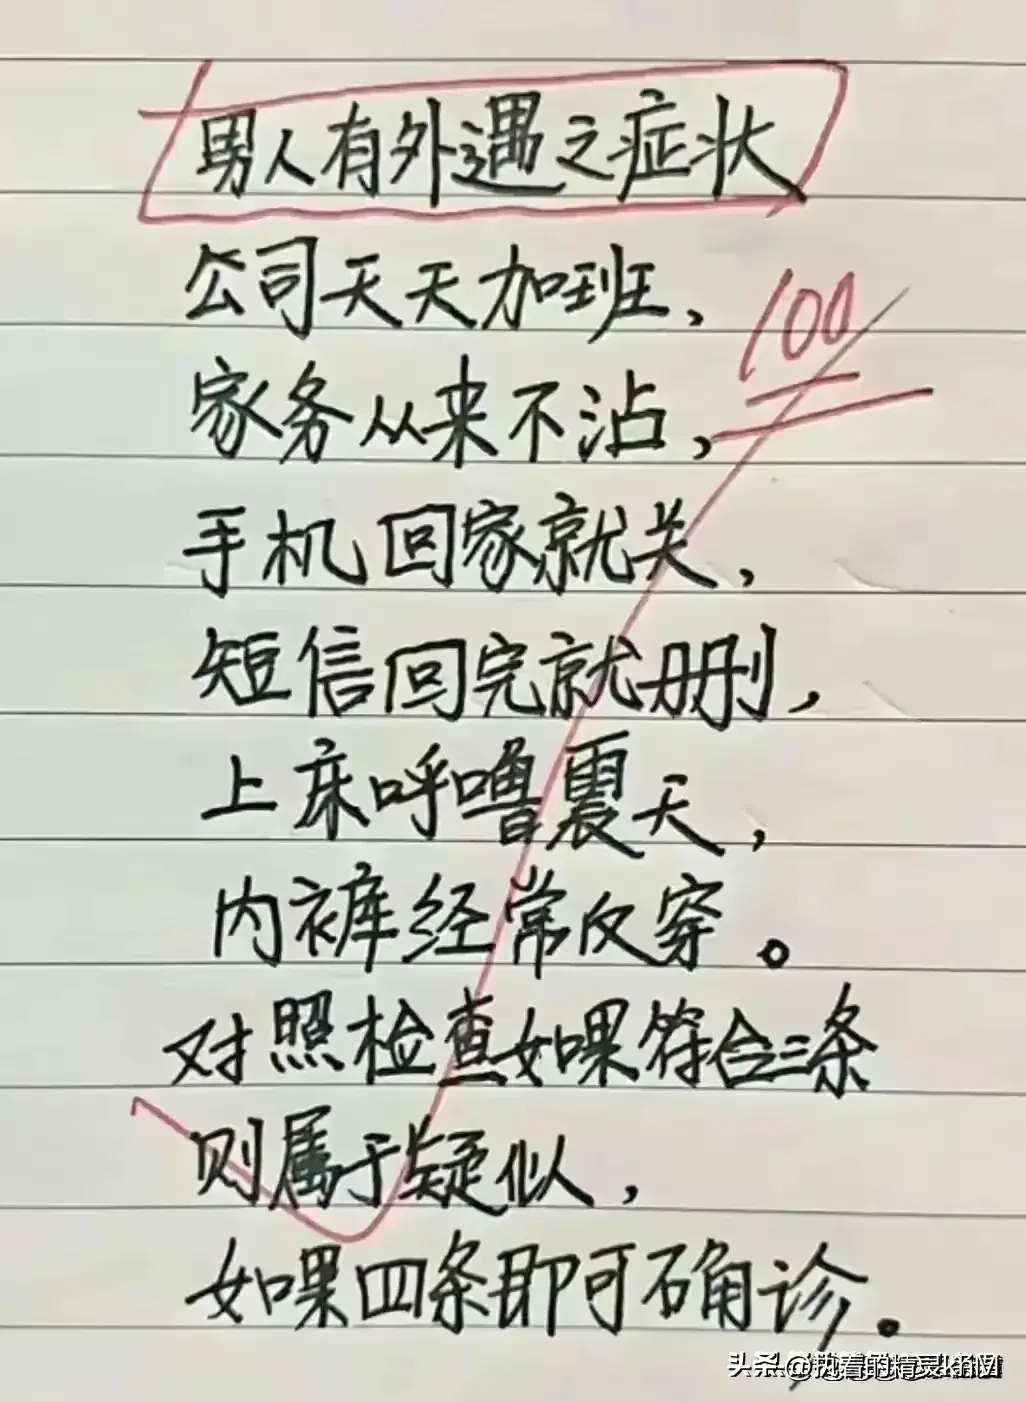 男人有外遇之症状
公司天天加班、
100
家务从来不沾，
手机回家就关，
短信回完就删，
上床呼噜震天，
内裤经常反穿。
对照检查如果符合三条
则属于疑似，
如果四条即可确诊。
头条@执着的精灵